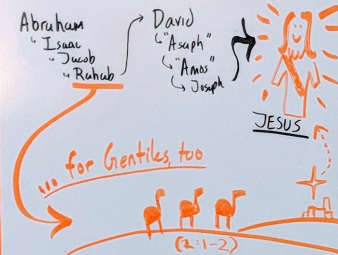 Abraham
Isaac
Jacob
Rahab
David
"Asaph"
"Amos"
Joseph
JESUS
... for Gentiles, too
(2:1-2)